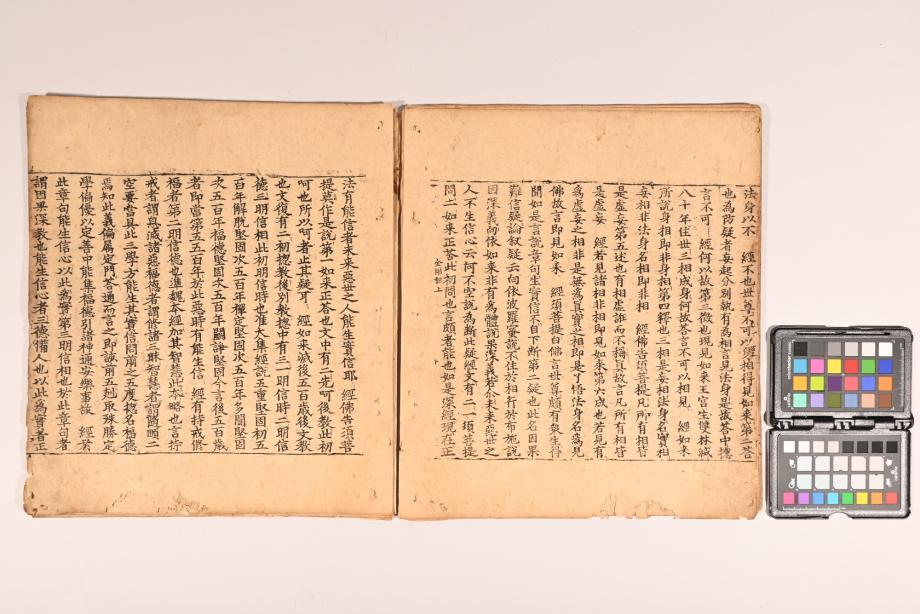 法身以不　經不也世尊不可以身相得見如來第二答
也為防疑者妄起分別就有為相言見法身是故答中摠
言不可　經何以故第三徵也現見如來王宮生雙林滅
八十年住世三相成身何故答言不可以相見　經如來
所說身相即非身相第四釋也三相是妄相法身名實相
妄相非法身名相即非相　經佛告須菩提凡所有相皆
是虛妄第五述也有相虛誰而不擀真故言凡所有相皆
是虛妄　經若見諸相非相即見如來第六成也若見有
為虛妄之相非是無為真實之相即是了悟法身名為見
佛故言即見如來　經須菩提白佛言世尊頗有衆生得
聞如是言說章句生實信不自下斷第二疑也此名因果
難信疑論叙疑云向依波羅蜜說不住於相行於布施說
因深義向依如來非有為體說果深義若尒未來惡世之
人不生信心云何不空說為斷此疑經文有二一須菩提
問二如來正荅此初問也言頗者能也如是深經現在正
金剛記上
法有能信者未來惡世之人能生實信耶　經佛告須菩
提莫作是說第一如來正荅也文中有二先呵後教此初
呵也所以呵者止其疑耳　經如來滅後五百歲後文教
也文復有二初摠教後別教摠中有三一明信時二明信
德三明信相此初明信時也准大集經說五重堅固初五
百年解脫堅固次五百年禪定堅固次五百年多聞堅固
次五百年福德堅固次五百年鬪諍堅固今言後五百歲
者即當第五五百年於此惡時有能生信　經有持戒脩
福者第二明信德也準魏本經加其智慧此本略也言持
戒者謂息滅諸惡福德者謂脩諸三昧智慧者謂舊頤二
空要當具此三學方能生其實信問前之五度摠名福德
焉知此義偏屬定門荅通而言之即該前五剋取殊勝定
學偏優以定善中能集福德引諸神通安樂事故　經於
此章句能生信心以此為實第三明信相也於此章句者
謂因果深教也能生信心者三德備人也以此為實者正